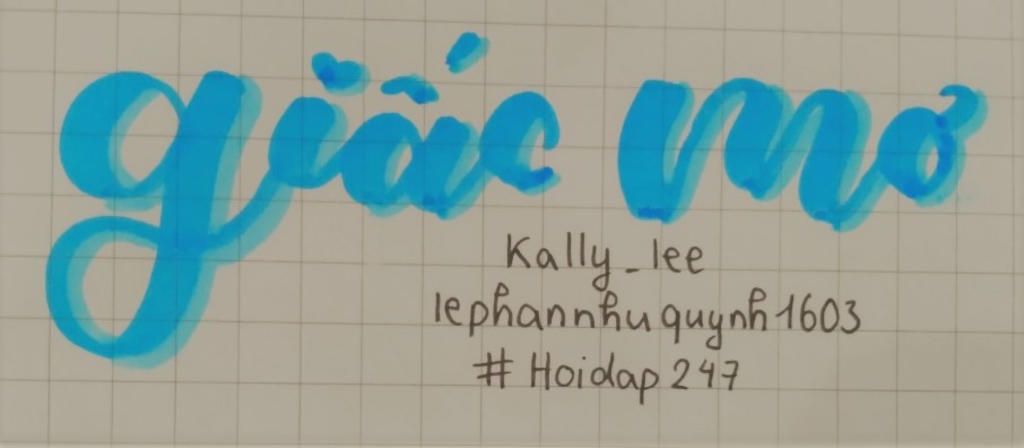 giấc mơ
Kally_lee
lephannhuquynh1603
# Hoidap 247